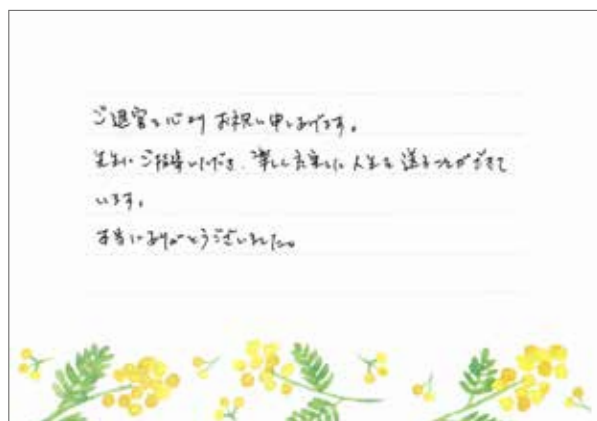 ご退官を心よりお祝い申しあげます。
先生にご指導いただき、楽しく充実した人生を送ることができて
います。
本当にありがとうございました。